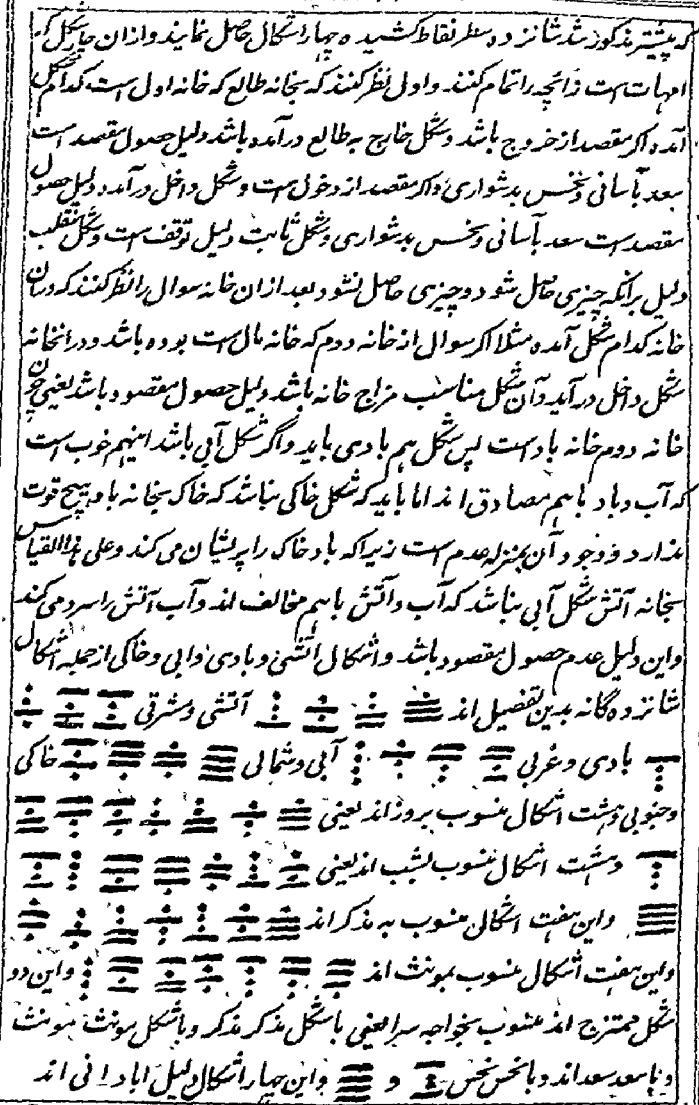 که پیشتر مذکور شد شانزده سطر نقاط کشیده چهار اشکال حاصل نمایند و ازان چار شکل که
امهات است زائچه را تمام کنند و اول نظر کنند که بخانه طالع که خانه اول است کدام شکل
آمده اگر مقصد از خروج باشد و شکل خارج به طالع در آمده باشد دلیل حصول مقصد است
سعد بآسانی و نحس بدشواری و اگر مقصد از دخول است و شکل داخل در آمده دلیل حصول
مقصد است سعد بآسانی و نحس بدشواری و شکل ثابت دلیل توقف است و شکل منقلب
دلیل برآنکه چیزی حاصل شود و چیزی حاصل نشود و بعد ازان خانه سوال را نظر کنند که دران
خانه کدام شکل آمده مثلا اگر سوال از خانه دوم که خانه مال است بوده باشد و درانخانه
شکل داخل درآید و آن شکل مناسب مزاج خانه باشد دلیل حصول مقصود باشد یعنی چون
خانه دوم خانه باد است پس شکل هم بادی باید و اگر شکل آبی باشد اینهم خوب است
که آب و باد باهم مصادق اند اما باید که شکل خاکی نباشد که خاک بخانه باد هیچ قوت
ندارد و وجود آن بمنزله عدم است زیرا که باد خاک را پریشان می کند و علی هذا القیاس
بخانه آتش شکل آبی نباشد که آب و آتش باهم مخالف اند و آب آتش را سرد می کند
و این دلیل عدم حصول مقصود باشد و اشکال آتشی و بادی و آبی و خاکی از جمله اشکال
شانزده گانه بدین تفصیل اند آتشی و شرقی
بادی و غربی آبی و شمالی خاکی
و جنوبی و هشت اشکال منسوب بروز اند یعنی
و هشت اشکال منسوب بشب اند یعنی
و این هفت اشکال منسوب به مذکر اند
و این هفت اشکال منسوب بمونث اند و این دو
شکل ممتزج اند منسوب بخواجه سرا یعنی با شکل مذکر مذکر و با شکل مونث مونث
و با سعد سعد اند و با نحس نحس و و این چهار اشکال دلیل آبادانی اند